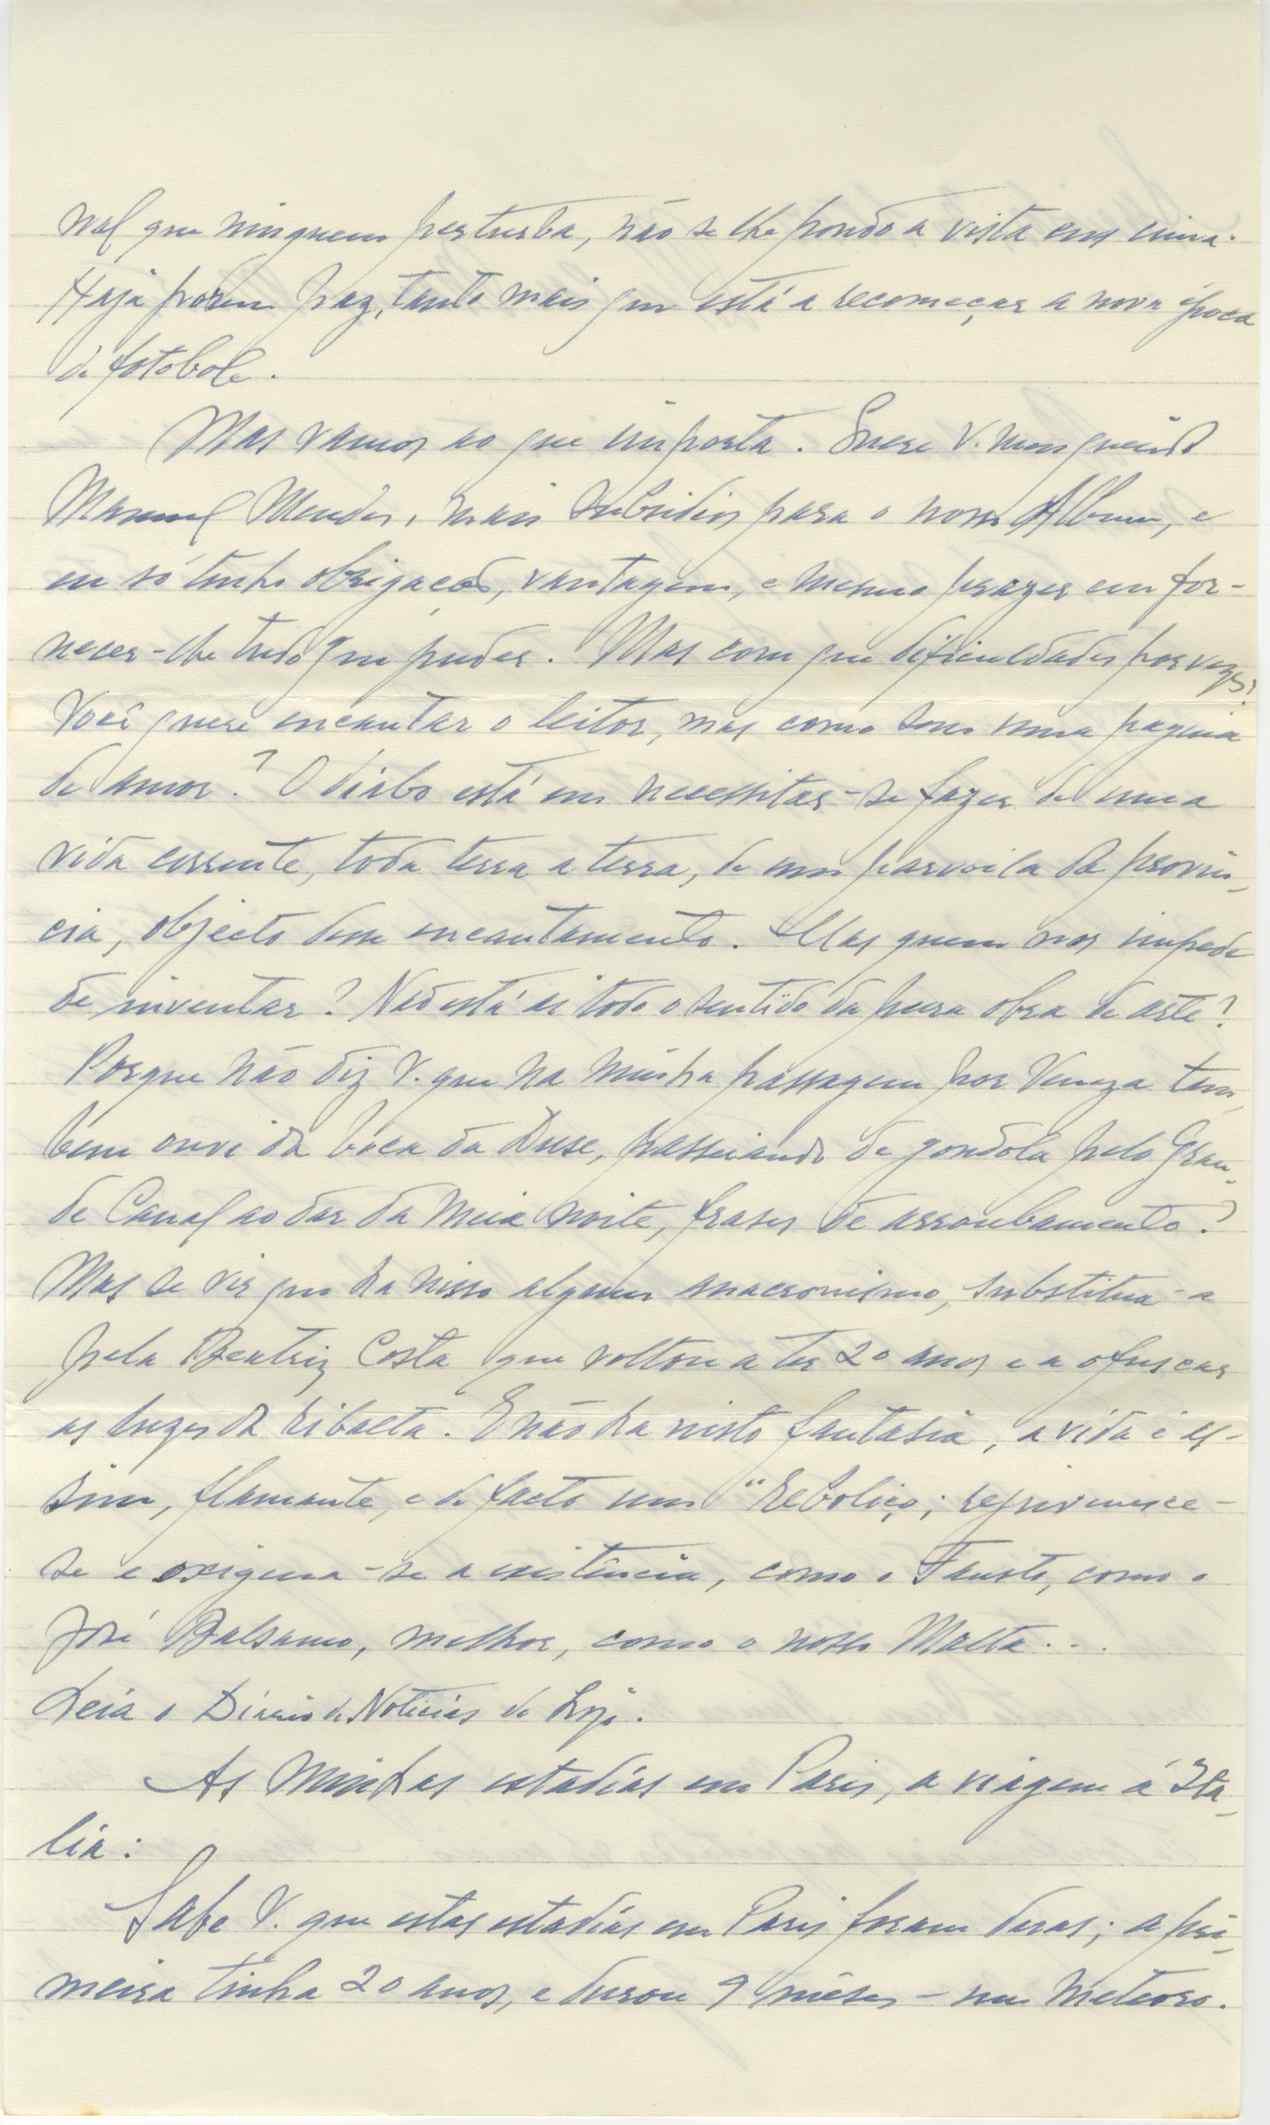 nal que ninguem perturba, não se lhe pondo a vista em cima.
Haja porem paz, tanto mais que está a recomeçar a nova época
de fotobole.
Mas vamos ao que importa. Quere V. meu querido
Manuel Mendes, mais subsidios para o nosso Album, e
eu só tenho obrigacão, vantagem, e mesmo prazer em for-
necer-lhe tudo que puder. Mas com que dificuldades por vezes!
Você quere encantar o leitor, mas como sem uma pagina
de amor? O diabo está em necessitar-se fazer de uma
vida corrente, toda terra a terra, de um da provin-
cia, objecto dum encantamento. Mas quem nos impede
de inventar? Não está ai todo o sentido da pura obra de arte?
Porque não diz V. que na minha passagem por Veneza tam-
bem ouvi da bôca da Duse, passeiando de gondola pelo Gran-
de Canal ao dar da meia noite, frases de arroubamento?
Mas se vir que ha nisso algum anacronismo, substitua-a
pela Beatriz Costa que voltou a ter 20 anos e a ofuscar
as luzes da ribalta. E não ha nisto fantasia, a vida é as-
sim, flamante, e de facto um "Reboliço; rejuvenesce-
se e oxigena-se a existência, como o Fausto, como o
José Balsamo, melhor, como o nosso Malta...
Leia o Diário de Noticias de hoje.
As minhas estadías em Paris, a viagem á Itá-
lia:
Sabe V. que estas estadías em Paris foram duas; a pri-
meira tinha 20 anos, e durou 9 mêses – um meteoro.